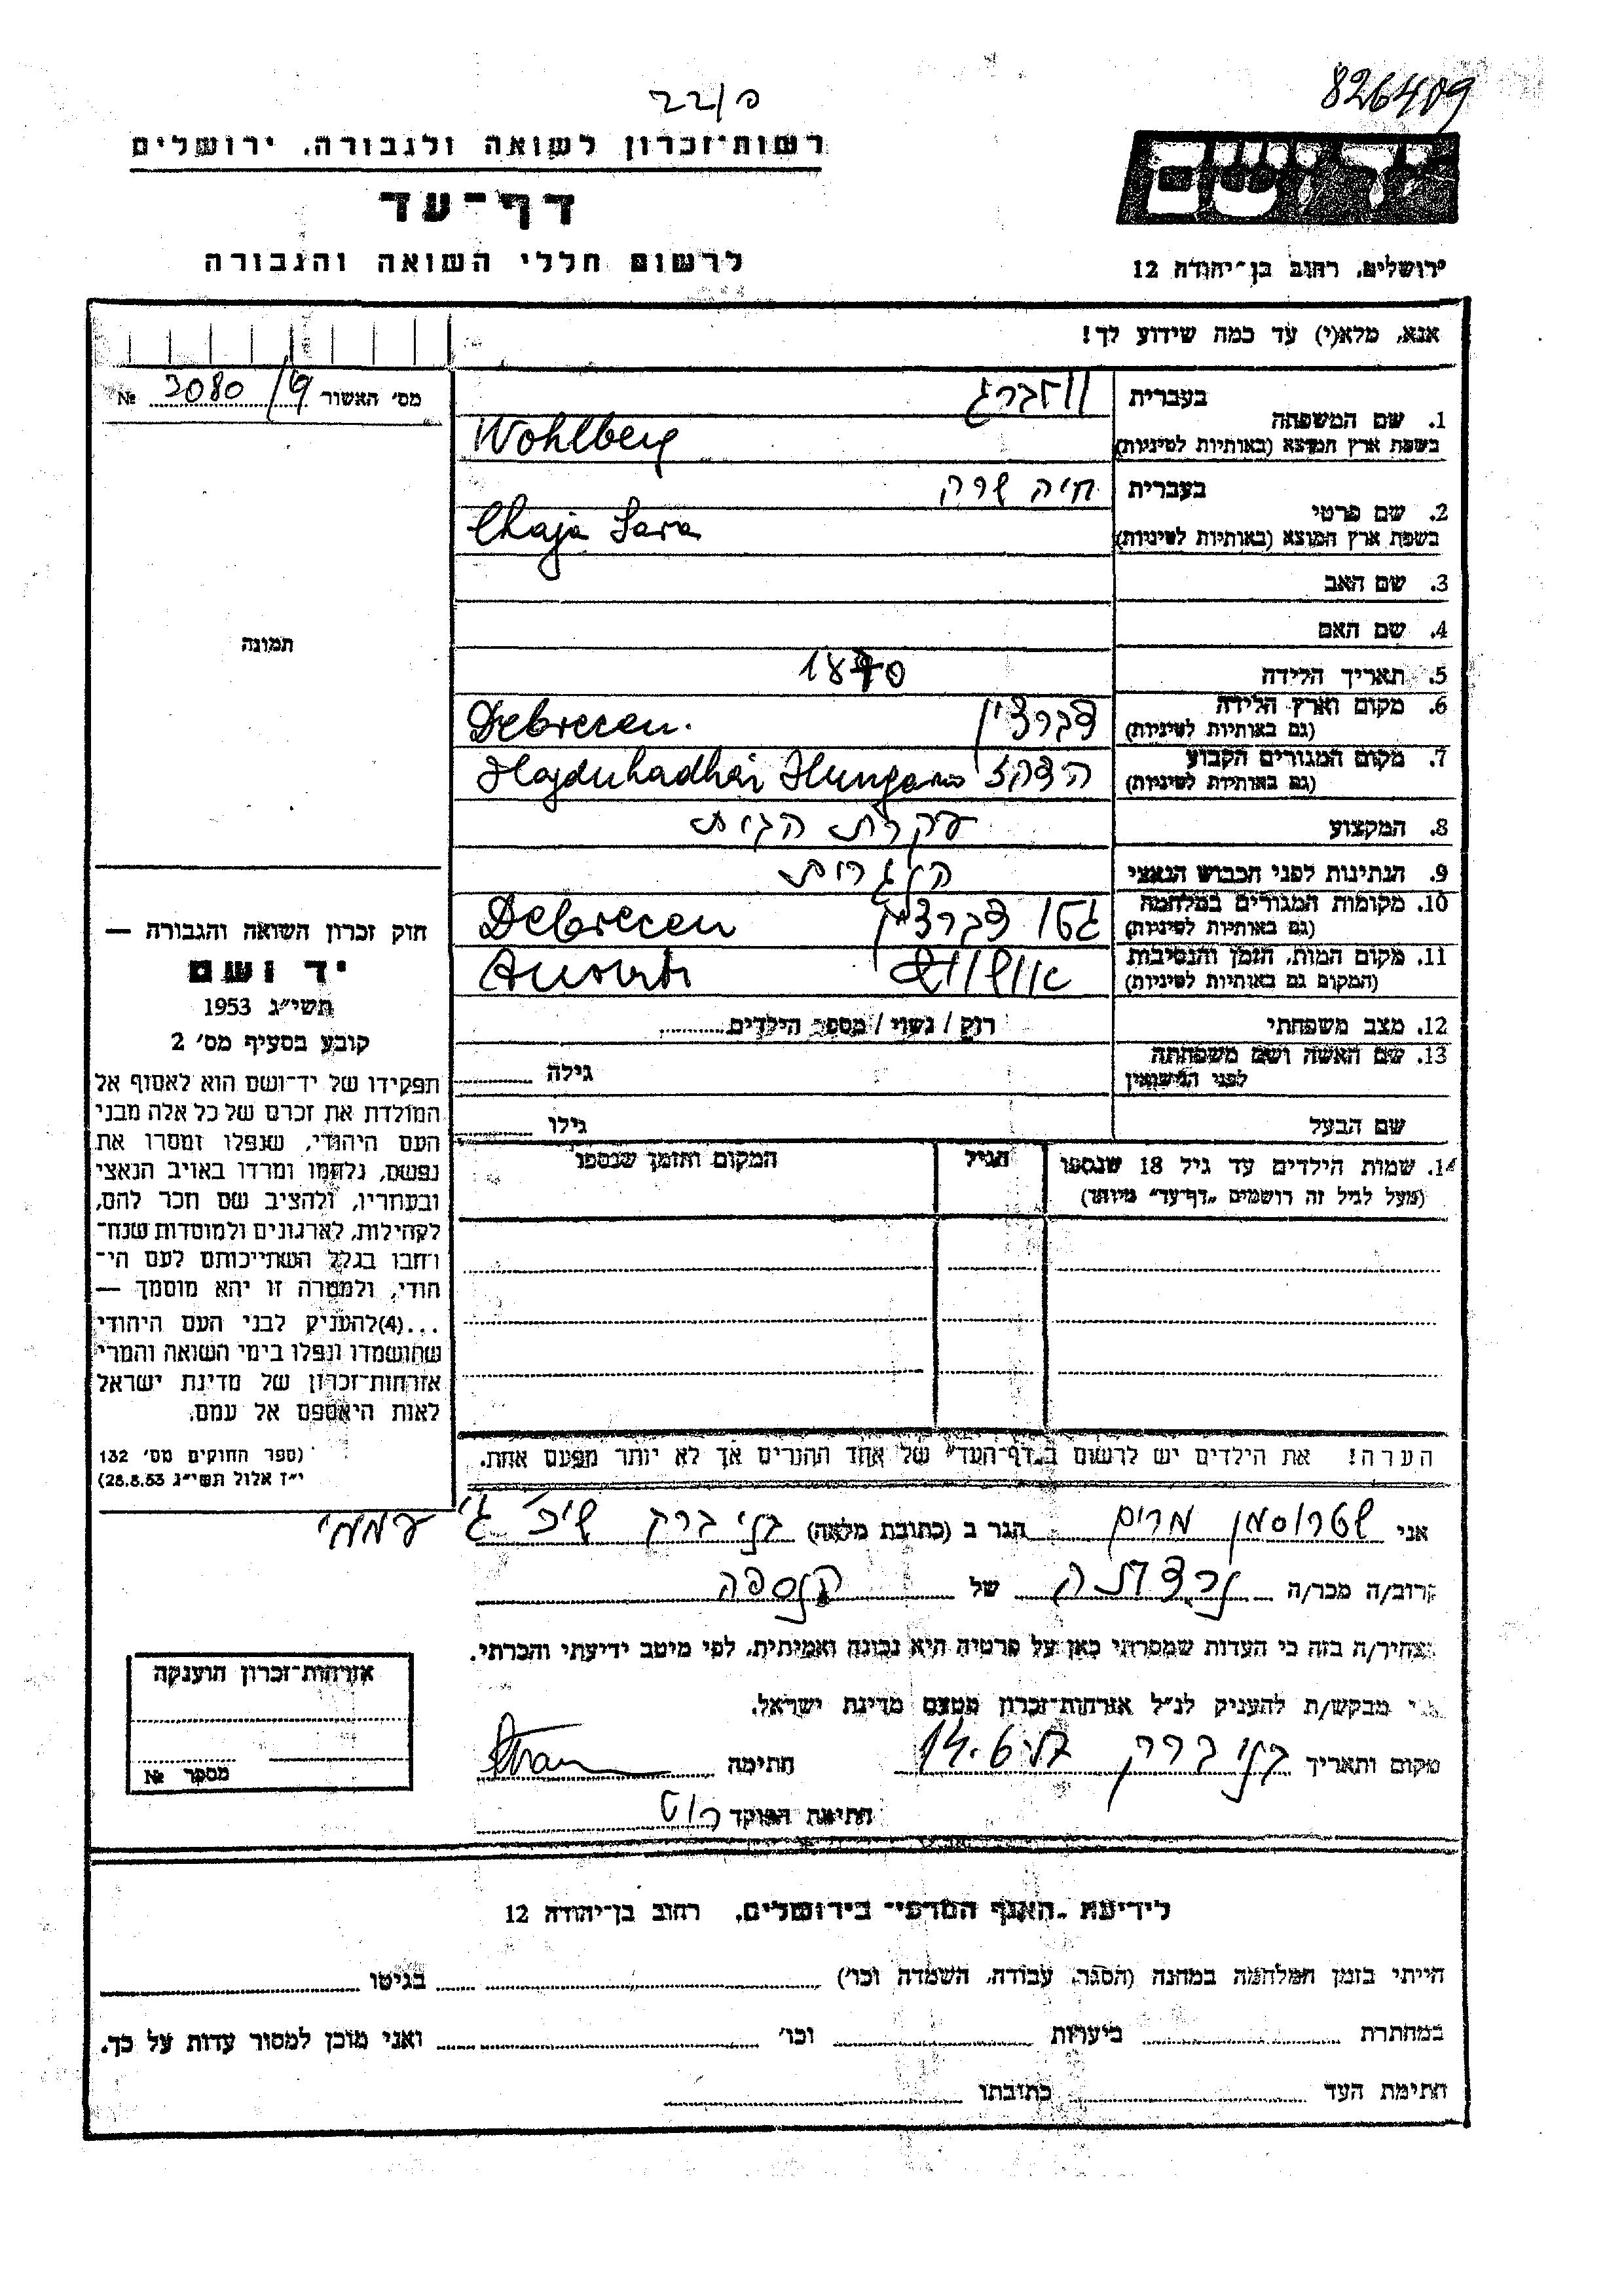 826409
22/פ
יד ושם
רשות־זכרון לשואה ולגבורה, ירושלים
דף־עד
לרשום חללי השואה והגבורה
ירושלים, רחוב בן־יהודה 12
אנא, מלא(י) עד כמה שידוע לך!
מס׳ האשור 3080 №
1. שם המשפחה
בעברית
בשפת ארץ המוצא (באותיות לטיניות)
Wohlberg
2. שם פרטי
בעברית חיה שרה
בשפת ארץ המוצא (באותיות לטיניות)
Chaja Sara
3. שם האב
4. שם האם
תמונה
5. תאריך הלידה 1870
6. מקום וארץ הלידה
(גם באותיות לטיניות)
דברצין Debrecen.
7. מקום המגורים הקבוע
(גם באותיות לטיניות)
8. המקצוע עקרת הבית
9. הנתינות לפני הכבוש הנאצי הונגרית
10. מקומות המגורים במלחמה
(גם באותיות לטיניות)
גטו דברצין Debrecen
11. מקום המות, הזמן והנסיבות
(המקום גם באותיות לטיניות)
12. מצב משפחתי רוק / נשוי / מספר הילדים
13. שם האשה ושם משפחתה
לפני הנישואין
גילה
שם הבעל גילו
14. שמות הילדים עד גיל 18 שנספו
(מעל לגיל זה רושמים „דף־עד״ מיוחד)
הגיל
המקום והזמן שנספו
הערה! את הילדים יש לרשום ב„דף־העד״ של אחד ההורים אך לא יותר מפעם אחת.
חוק זכרון השואה והגבורה —
יד ושם
תשי״ג 1953
קובע בסעיף מס׳ 2
תפקידו של יד־ושם הוא לאסוף אל
המולדת את זכרם של כל אלה מבני
העם היהודי, שנפלו ומסרו את
נפשם, נלחמו ומרדו באויב הנאצי
ובעוזריו, ולהציב שם וזכר להם,
לקהילות, לארגונים ולמוסדות שנח־
רבו בגלל השתייכותם לעם הי־
הודי, ולמטרה זו יהא מוסמך —
...(4)להעניק לבני העם היהודי
שהושמדו ונפלו בימי השואה והמרי
אזרחות־זכרון של מדינת ישראל
לאות היאספם אל עמם.
(ספר החוקים מס׳ 132
י״ז אלול תשי״ג 28.8.53)
אני שטרוסמן מרים הגר ב (כתובת מלאה) בני ברק
קרוב/ה מכר/ה נכדתה של הנספה
מצהיר/ה בזה כי העדות שמסרתי כאן על פרטיה היא נכונה ואמיתית, לפי מיטב ידיעתי והכרתי.
אני מבקש/ת להעניק לנ״ל אזרחות־זכרון מטעם מדינת ישראל.
מקום ותאריך בני ברק 14.6.57 חתימה
חתימת הפוקד
אזרחות־זכרון הוענקה
מספר №
לידיעת „האגף המדעי״ בירושלים, רחוב בן־יהודה 12
הייתי בזמן המלחמה במחנה (הסגר, עבודה, השמדה וכו׳) בגיטו
במחתרת ביערות וכו׳ ואני מוכן למסור עדות על כך.
חתימת העד כתובתו